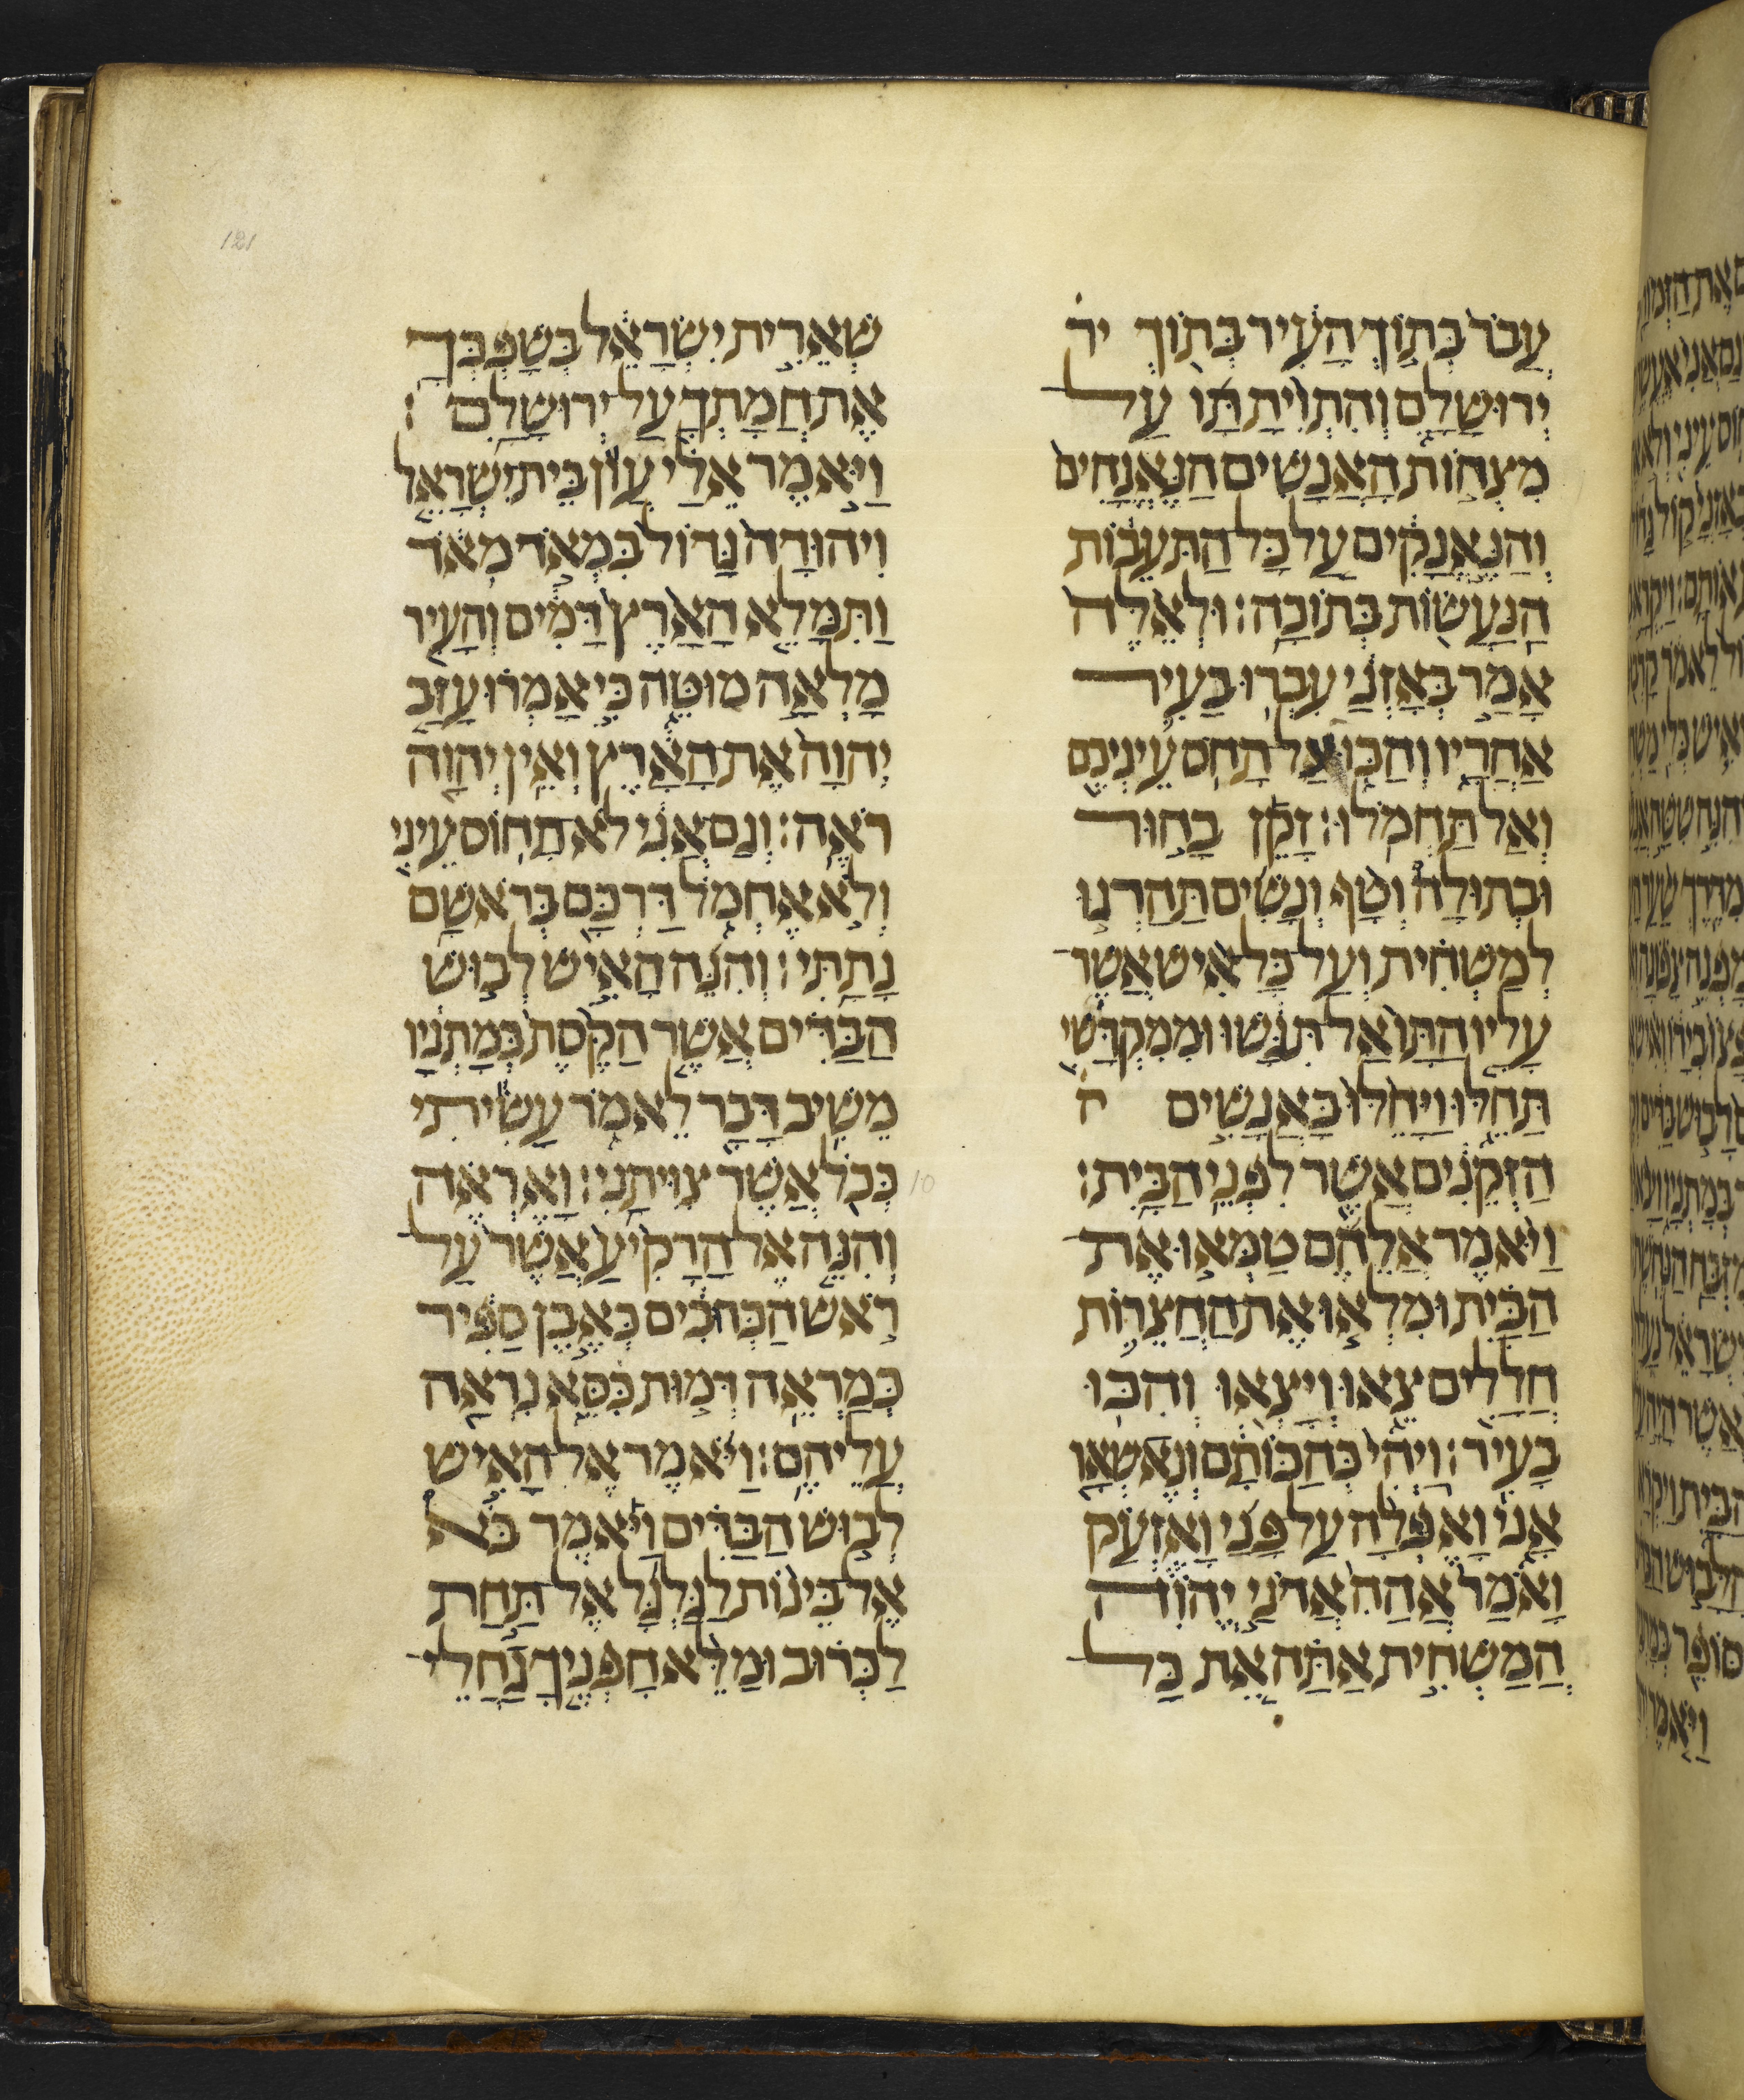 עֲבֹר בְּתוֹךְ הָעִיר בְּתוֹךְ יר
יְרוּשָׁלִָם וְהִתְוִיתָ תָּו עַל
מִצְחוֹת הָאֲנָשִׁים הַנֶּאֱנָחִים
וְהַנֶּאֱנָקִים עַל כָּל הַתֹּעֵבוֹת
הַנַּעֲשׂוֹת בְּתוֹכָהּ׃ וּלְאֵלֶּה
אָמַר בְּאָזְנַי עִבְרוּ בָעִיר
אַחֲרָיו וְהַכּוּ אַל תָּחֹס עֵינְיכֶם
וְאַל תַּחְמֹלוּ׃ זָקֵן בָּחוּר
וּבְתוּלָה וְטַף וְנָשִׁים תַּהַרְגוּ
לְמַשְׁחִית וְעַל כָּל אִישׁ אֲשֶׁר
עָלָיו הַתָּו אַל תִּגַּשׁוּ וּמִמִּקְדָּשִׁי
תָּחֵלּוּ וַיָּחֵלּוּ בָּאֲנָשִׁים ה
הַזְּקֵנִים אֲשֶׁר לִפְנֵי הַבָּיִת׃
וַיֹּאמֶר אֲלֵהֶם טַמְּאוּ אֶת
הַבַּיִת וּמִלְאוּ אֶת הַחֲצֵרוֹת
חֲלָלִים צֵאוּ וְיָצְאוּ וְהִכּוּ
בָעִיר׃ וַיְהִי כְּהַכּוֹתָם וְנֵאשְׁאַר
אָנִי וָאֶפְּלָה עַל פָּנַי וָאֶזְעַק
וָאֹמַר אֲהָהּ אֲדֹנָי יֱהוִֹה
הֲמַשְׁחִית אַתָּה אֵת כָּל
שְׁאֵרִית יִשְׂרָאֵל בְּשָׁפְכְּךָ
אֶת חֲמָתְךָ עַל יְרוּשָׁלִָם׃
וַיֹּאמֶר אֵלַי עֲוֹן בֵּית יִשְׂרָאֵל
וִיהוּדָה גָּדוֹל בִּמְאֹד מְאֹד
וַתִּמָּלֵא הָאָרֶץ דָּמִים וְהָעִיר
מָלְאָה מוּטֶּה כִּי אָמְרוּ עָזַב
יְהוָה אֶת הָאָרֶץ וְאֵין יְהוָה
רֹאֶה׃ וְגַם אֲנִי לֹא תָחוֹס עֵינִי
וְלֹא אֶחְמֹל דַּרְכָּם בְּרֹאשָׁם
נָתָתִּי׃ וְהִנֵּה הָאִישׁ לְבוּשׁ
הַבַּדִּים אֲשֶׁר הַקֶּסֶת בְּמָתְנָיו
מֵשִׁיב דָּבָר לֵאמֹר עָשִׂיתִי
כְּכֹל אֲשֶׁר צִוִּיתָנִי׃ וָאֶרְאֶה 10
וְהִנֵּה אֶל הָרָקִיעַ אֲשֶׁר עַל
רֹאשׁ הַכְּרֻבִים כְּאֶבֶן סַפִּיר
כְּמַרְאֵה דְּמוּת כִּסֵּא נִרְאָה
עֲלֵיהֶם׃ וַיֹּאמֶר אֶל הָאִישׁ
לְבוּשׁ הַבַּדִּים וַיֹּאמֶר בֹּא
אֶל בֵּינוֹת לַגַּלְגַּל אֶל תַּחַת
לַכְּרוּב וּמַלֵּא חָפְנֶיךָ גַחֲלֵי
121